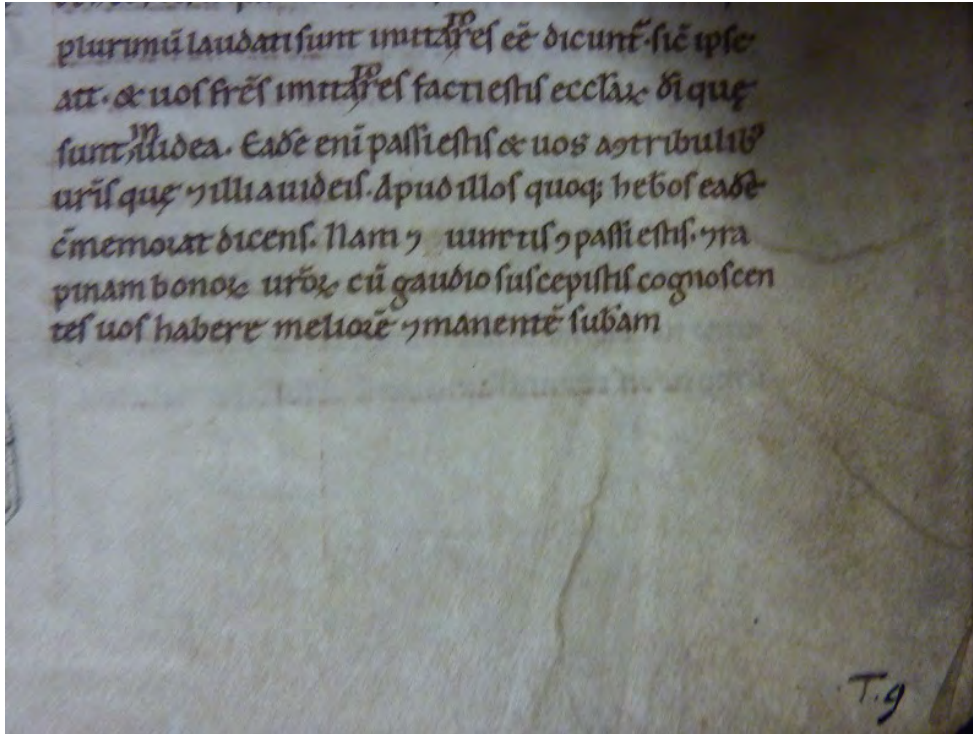 plurimū laudati sunt imitatores eē dicunt̃. sic̃ ipse
ait. & uos fr̄es imitatores facti estis eccl̄aꝝ dī quę
sunt in iudea. Eadē enī passi estis & uos a ↄtribulibꝰ
ur̄is quę ⁊ illi a iudeis. Apud illos quoq; heb̄os eadē
c̄memorat dicens. Nam ⁊ uinctis ↄpassi estis. ⁊ ra
pinam bonoꝝ ur̄oꝝ cū gaudio suscepistis cognoscen
tes uos habere meliorē ⁊ manentē sub̄am
T.g